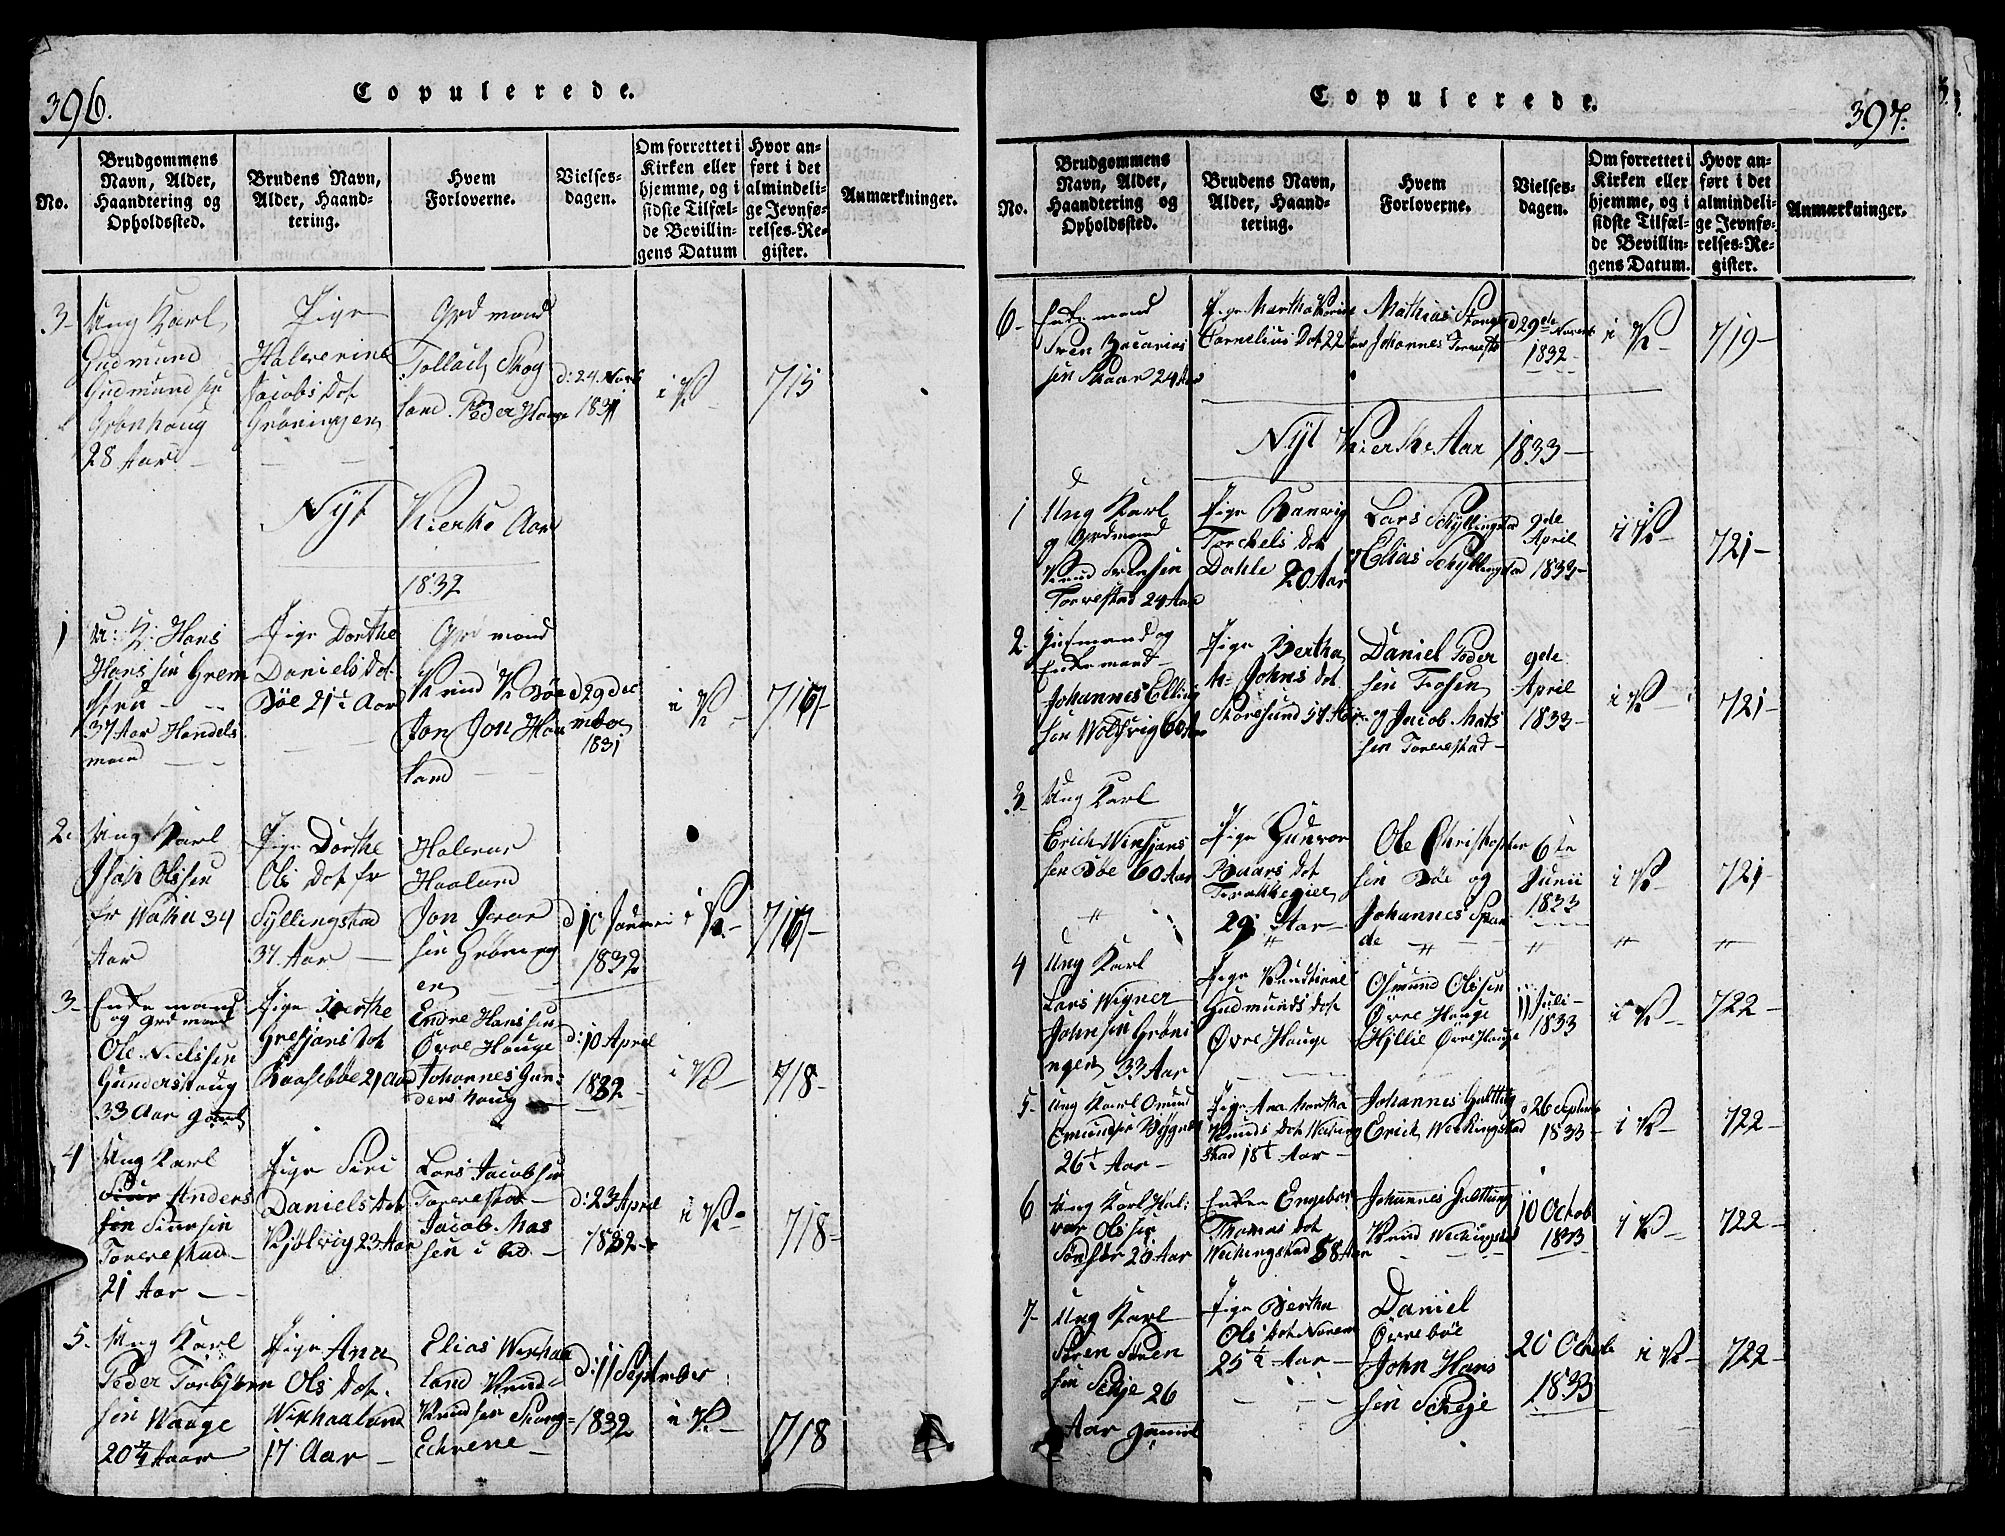 396.
Copulerede.
No.
Brudgommens
Navn, Alder,
Haandtering og
Opholdssted.
Brudens Navn,
Alder, Haand-
tering.
Hvem
Forloverne.
Vielses-
dagen.
Om forrettet i
Kirken eller
hjemme, og i
sidste Tilfæl-
de Bevillin-
gens Datum
Hvor an-
ført i det
almindeli-
ge Jevnfø-
relses-Re-
gister.
Anmærkninger.
3- Ung Karl
Gudmund
Gudmundsen
Grønhaug
28 Aar
Pige
Halverine
Jacobs Dot
Grøningen
Grdmand
Tollach Skog
land. Peder Hauge
d: 24 Novb
1831
i K-
715
Nyt Kierke Aar
1832
1
U: K: Hans
Hanssen
37 Aar Handels
mand
Pige Dorthe
Daniels Dot
Bøe 21 Aar
Grdmand
Knud K Bøe
Jon Jon
land
d 29 De
mber
1831
i K-
716-
2.
Ung Karl
Isak Olssen
34
Aar
Pige Dorthe
Ols Dot fr
Syllingstad
37 Aar
Halvor
Haaland
Jon Ivar
sen Grøning
en
1832
i K-
716-
3-
Enkemand
og Grdmand
Ole Nielssen
Gundershaug
33 Aar gaml
Pige Berthe
Grefsjans Dot
21 Aar
Endre Hanssen
Øvre Hauge
Johannes Gun-
ders Haug
d: 10 April
1832
i K-
718-
4
Ung Karl
Anders
sen
Torvestad-
21 Aar
Pige Siri
Daniels Dot
Kjølvig 23 Aar
Lars Jacobsen
Torvestad
Jacob Mas
sen i
d: 23 April
1832
i K-
718-
5.
Ung Karl
Peder Torbjørn
sen Waage
20 1/4 Aar
Pige Ana
Ols Dot.
Wikhaaland
17 Aar
Elias Wikhaa
land Knud
Knudsen
d: 11 September
1832
i K-
718
397.
Copulerede.
No.
Brudgommens
Navn, Alder,
Haandtering og
Opholdssted.
Brudens Navn,
Alder, Haand-
tering.
Hvem
Forloverne.
Vielses-
dagen.
Om forrettet i
Kirken eller
hjemme, og i
sidste Tilfæl-
de Bevillin-
gens Datum.
Hvor an-
ført i det
almindeli-
ge Jevnfø-
relses-Re-
gister.
Anmærkninger.
6-
Enkemand
Sven Zacarias
sen Skaar 24 Aar
Pige Martha
Cornelius Dot 22 Aar
Mathias Stange
Johannes Torvestad
d 29de Novemb
1832-
i K-
719-
Nyt Kierke Aar 1833-
1
Ung Karl
og Grdmand
Knud
Torvestad 24 Aar
Pige Ranvig
Torchels Dot
Dahle 20 Aar
Lars Schyllingstad
Elias Schyllingstad
9de
April
1833-
i K-
721-
2.
Husmand og
Enkemand-
Johannes Elling
sen
Pige Bertha
M: Johns Dot
Storesund
Daniel Peder
sen Frosen
og Jacob Mats
sen Torvestad-
9de
April
1833-
i K-
721-
3-
Ung Karl
Erich
sen Bøe 60 Aar
Pige Gudvor
Baars Dot
29 Aar-
Ole Christopher
sen Bøe og
Johannes Span
de
6te
Junii
1833
i K-
721-
4
Ung Karl
Lars Wigner
Johnsen Grøni
ngen 33 Aar
Pige
Gudmunds Dot
Øvre Hauge
Osmund Olssen
Øvre Hauge
Hjllie Øvre Hauge
11 Juli-
1833
i K-
722-
5-
Ung Karl Omund
26 1/2 Aar-
Pige Ana Martha
Knuds Dot Wiking
stad 18 1/2 Aar-
Johannes Galttung
Erich Weckingstad
d 26 Septemb
1833-
i K-
722-
6
Ung Karl Hal:
vor Olssen
Aar
Enken Engebor
Thomas Dot
Weckingstad 58 Aar
Johannes Galttung
Knud Weckingstad
10 Octob
1833
i K-
722-
7-
Ung Karl
Søren Søren
sen Sckeje 26
Aar gammel
Pige Bertha
Ols Dot
25 1/2 Aar-
Daniel
Øvrebøe
John Hans
sen Sckeje
20 Octob
1833
i K-
722-